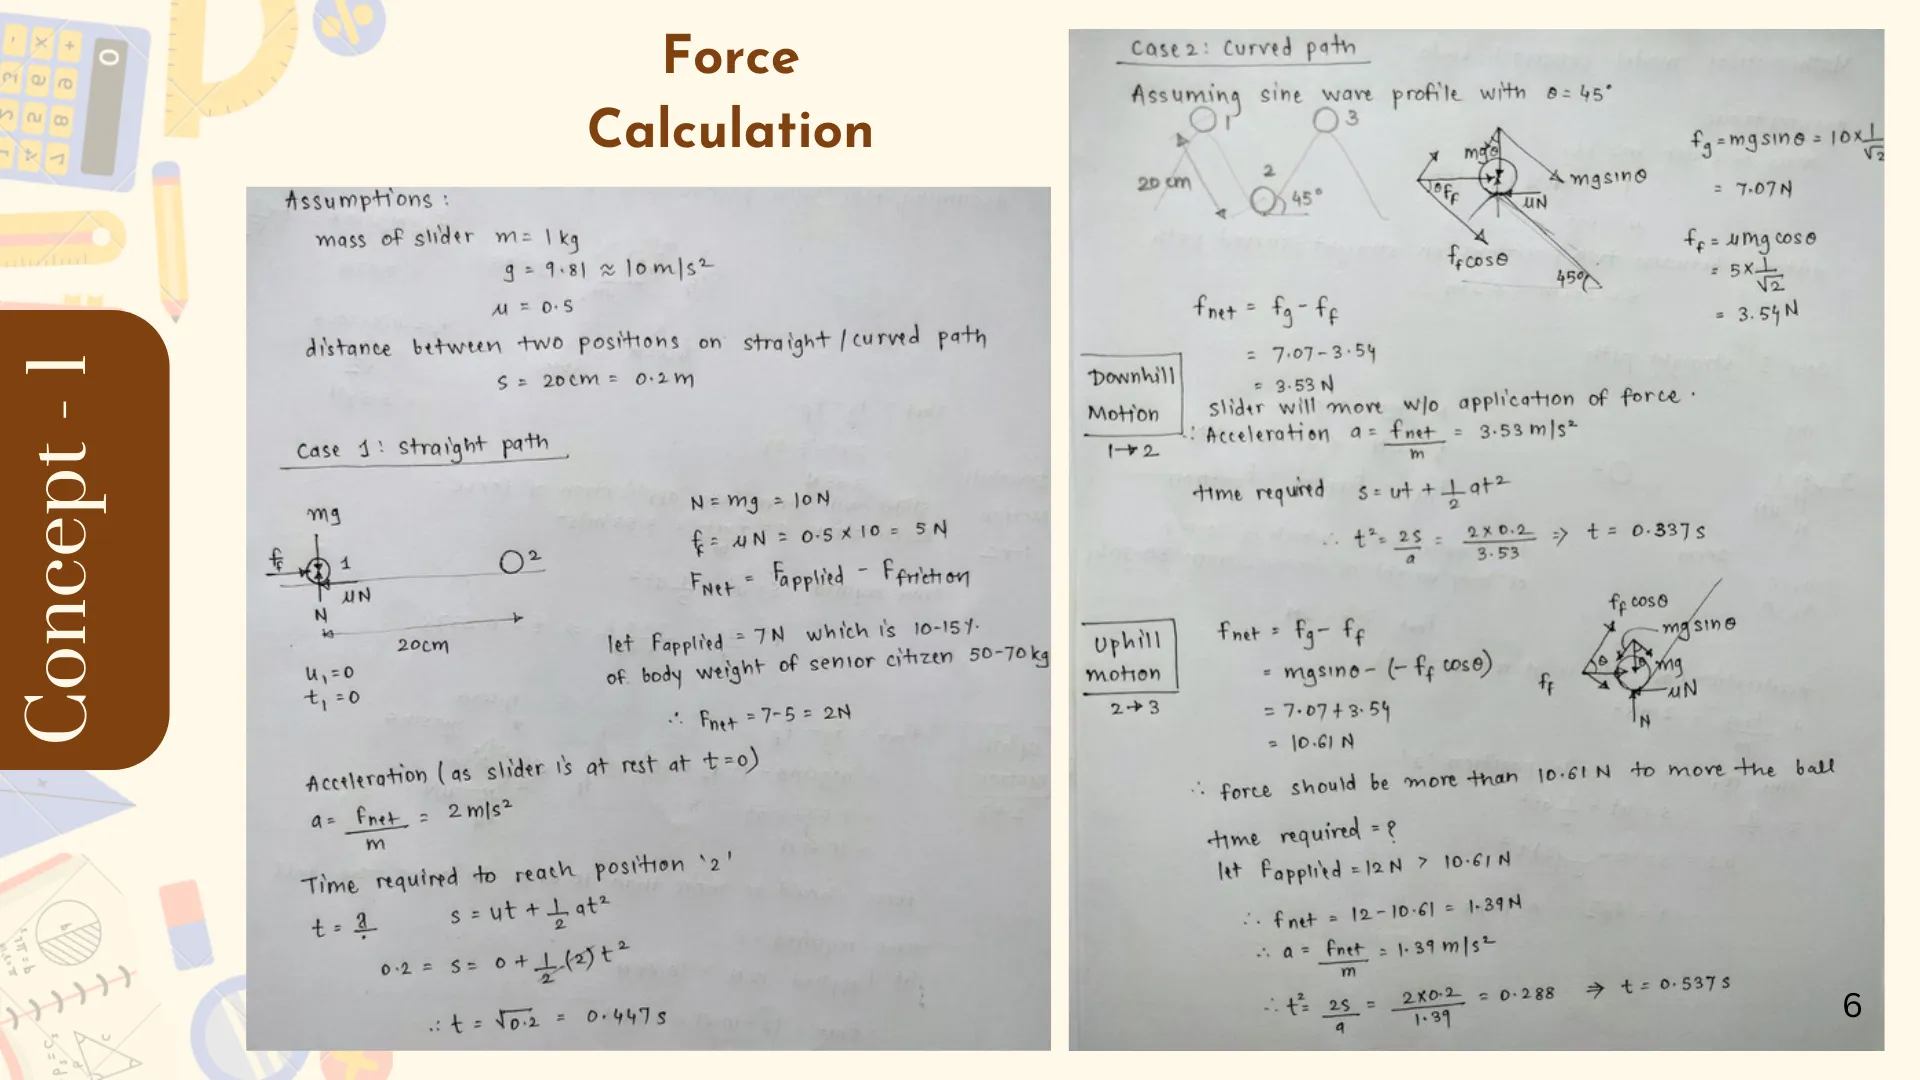 Force
Calculation
Concept - 1
Assumptions :
mass of slider m = 1 kg
g = 9.81 ≈ 10 m/s²
μ = 0.5
distance between two positions on straight / curved path
s = 20cm = 0.2 m
Case 1 : straight path
mg
f_f
1
2
μN
N
20cm
u₁ = 0
t₁ = 0
N = mg = 10 N
f_f = μN = 0.5 × 10 = 5 N
F_Net = F_applied - F_friction
let F_applied = 7N which is 10-15%
of body weight of senior citizen 50-70kg
∴ F_net = 7-5 = 2N
Acceleration (as slider is at rest at t=0)
a = F_net / m = 2 m/s²
Time required to reach position '2'
t =
s = ut + 1/2 at²
0.2 = s = 0 + 1/2 (2) t²
∴ t = √0.2 = 0.447 s
Case 2 : Curved path
Assuming sine wave profile with θ = 45°
1
3
20 cm
2
45°
mg
θ
mgsinθ
θ
f_f
μN
f_f cosθ
45°
f_g = mgsinθ = 10 × 1/√2
= 7.07N
f_f = μmg cosθ
= 5 × 1/√2
= 3.54 N
f_net = f_g - f_f
= 7.07 - 3.54
= 3.53 N
Downhill
Motion
1→2
slider will move w/o application of force.
∴ Acceleration a = f_net / m = 3.53 m/s²
time required s = ut + 1/2 at²
∴ t² = 2s / a = 2×0.2 / 3.53 ⇒ t = 0.337 s
Uphill
motion
2→3
f_net = f_g - f_f
= mgsinθ - (- f_f cosθ)
= 7.07 + 3.54
= 10.61 N
f_f cosθ
mgsinθ
θ
θ
mg
f_f
μN
N
∴ force should be more than 10.61 N to move the ball
time required = ?
let F_applied = 12 N > 10.61 N
∴ f_net = 12 - 10.61 = 1.39 N
∴ a = F_net / m = 1.39 m/s²
∴ t² = 2s / a = 2×0.2 / 1.39 = 0.288 ⇒ t = 0.537 s
6